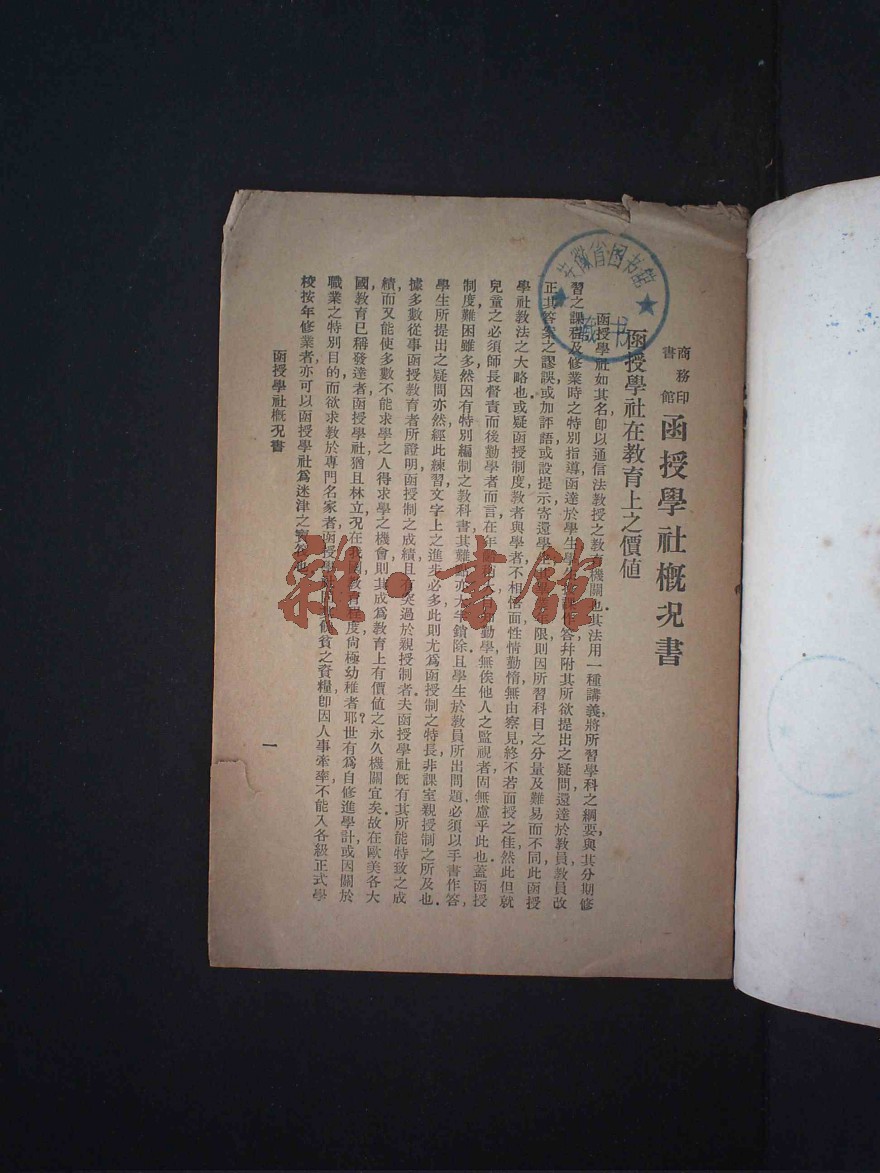 商務印
書館
函授學社概況書
函授學社在教育上之價値
函授學社如其名卽以通信法教授之教育機關也其法用一種講義將所習學科之綱要與其分期修
習之課程及修業時之特別指導函達於學生學生作答幷附其所欲提出之疑問還達於教員教員改
正其答案之謬誤或加評語或設提示寄還學生年限則因所習科目之分量及難易而不同此函授
學社教法之大略也或疑函授制度教者與學者不相悟面性情勤惰無由察見終不若面授之佳然此但就
兒童之必須師長督責而後勤學者而言在年勤學無俟他人之監視者固無慮乎此也蓋函授
制度難困雖多然因有特別編制之教科書其難亦大半鎖除且學生於教員所出問題必須以手書作答
學生所提出之疑問亦然經此練習文字上之進步必多此則尤爲函授制之特長非課室親授制之所及也
據多數從事函授教育者所證明函授制之成績且有突過於親授制者夫函授學社旣有其所能特致之成
績而又能使多數不能求學之人得求學之機會則其成爲教育上有價値之永久機關宜矣故在歐美各大
國教育已稱發達者函授學社猶且林立况在我國教育程度尙極幼稚者耶世有爲自修進學計或因關於
職業之特別目的而欲求教於專門名家者函授學社貧之資糧卽因人事牽率不能入各級正式學
校按年修業者亦可以函授學社爲迷津之寶筏也
函授學社概况書
一
安徽省图书馆
藏书
雜·書館